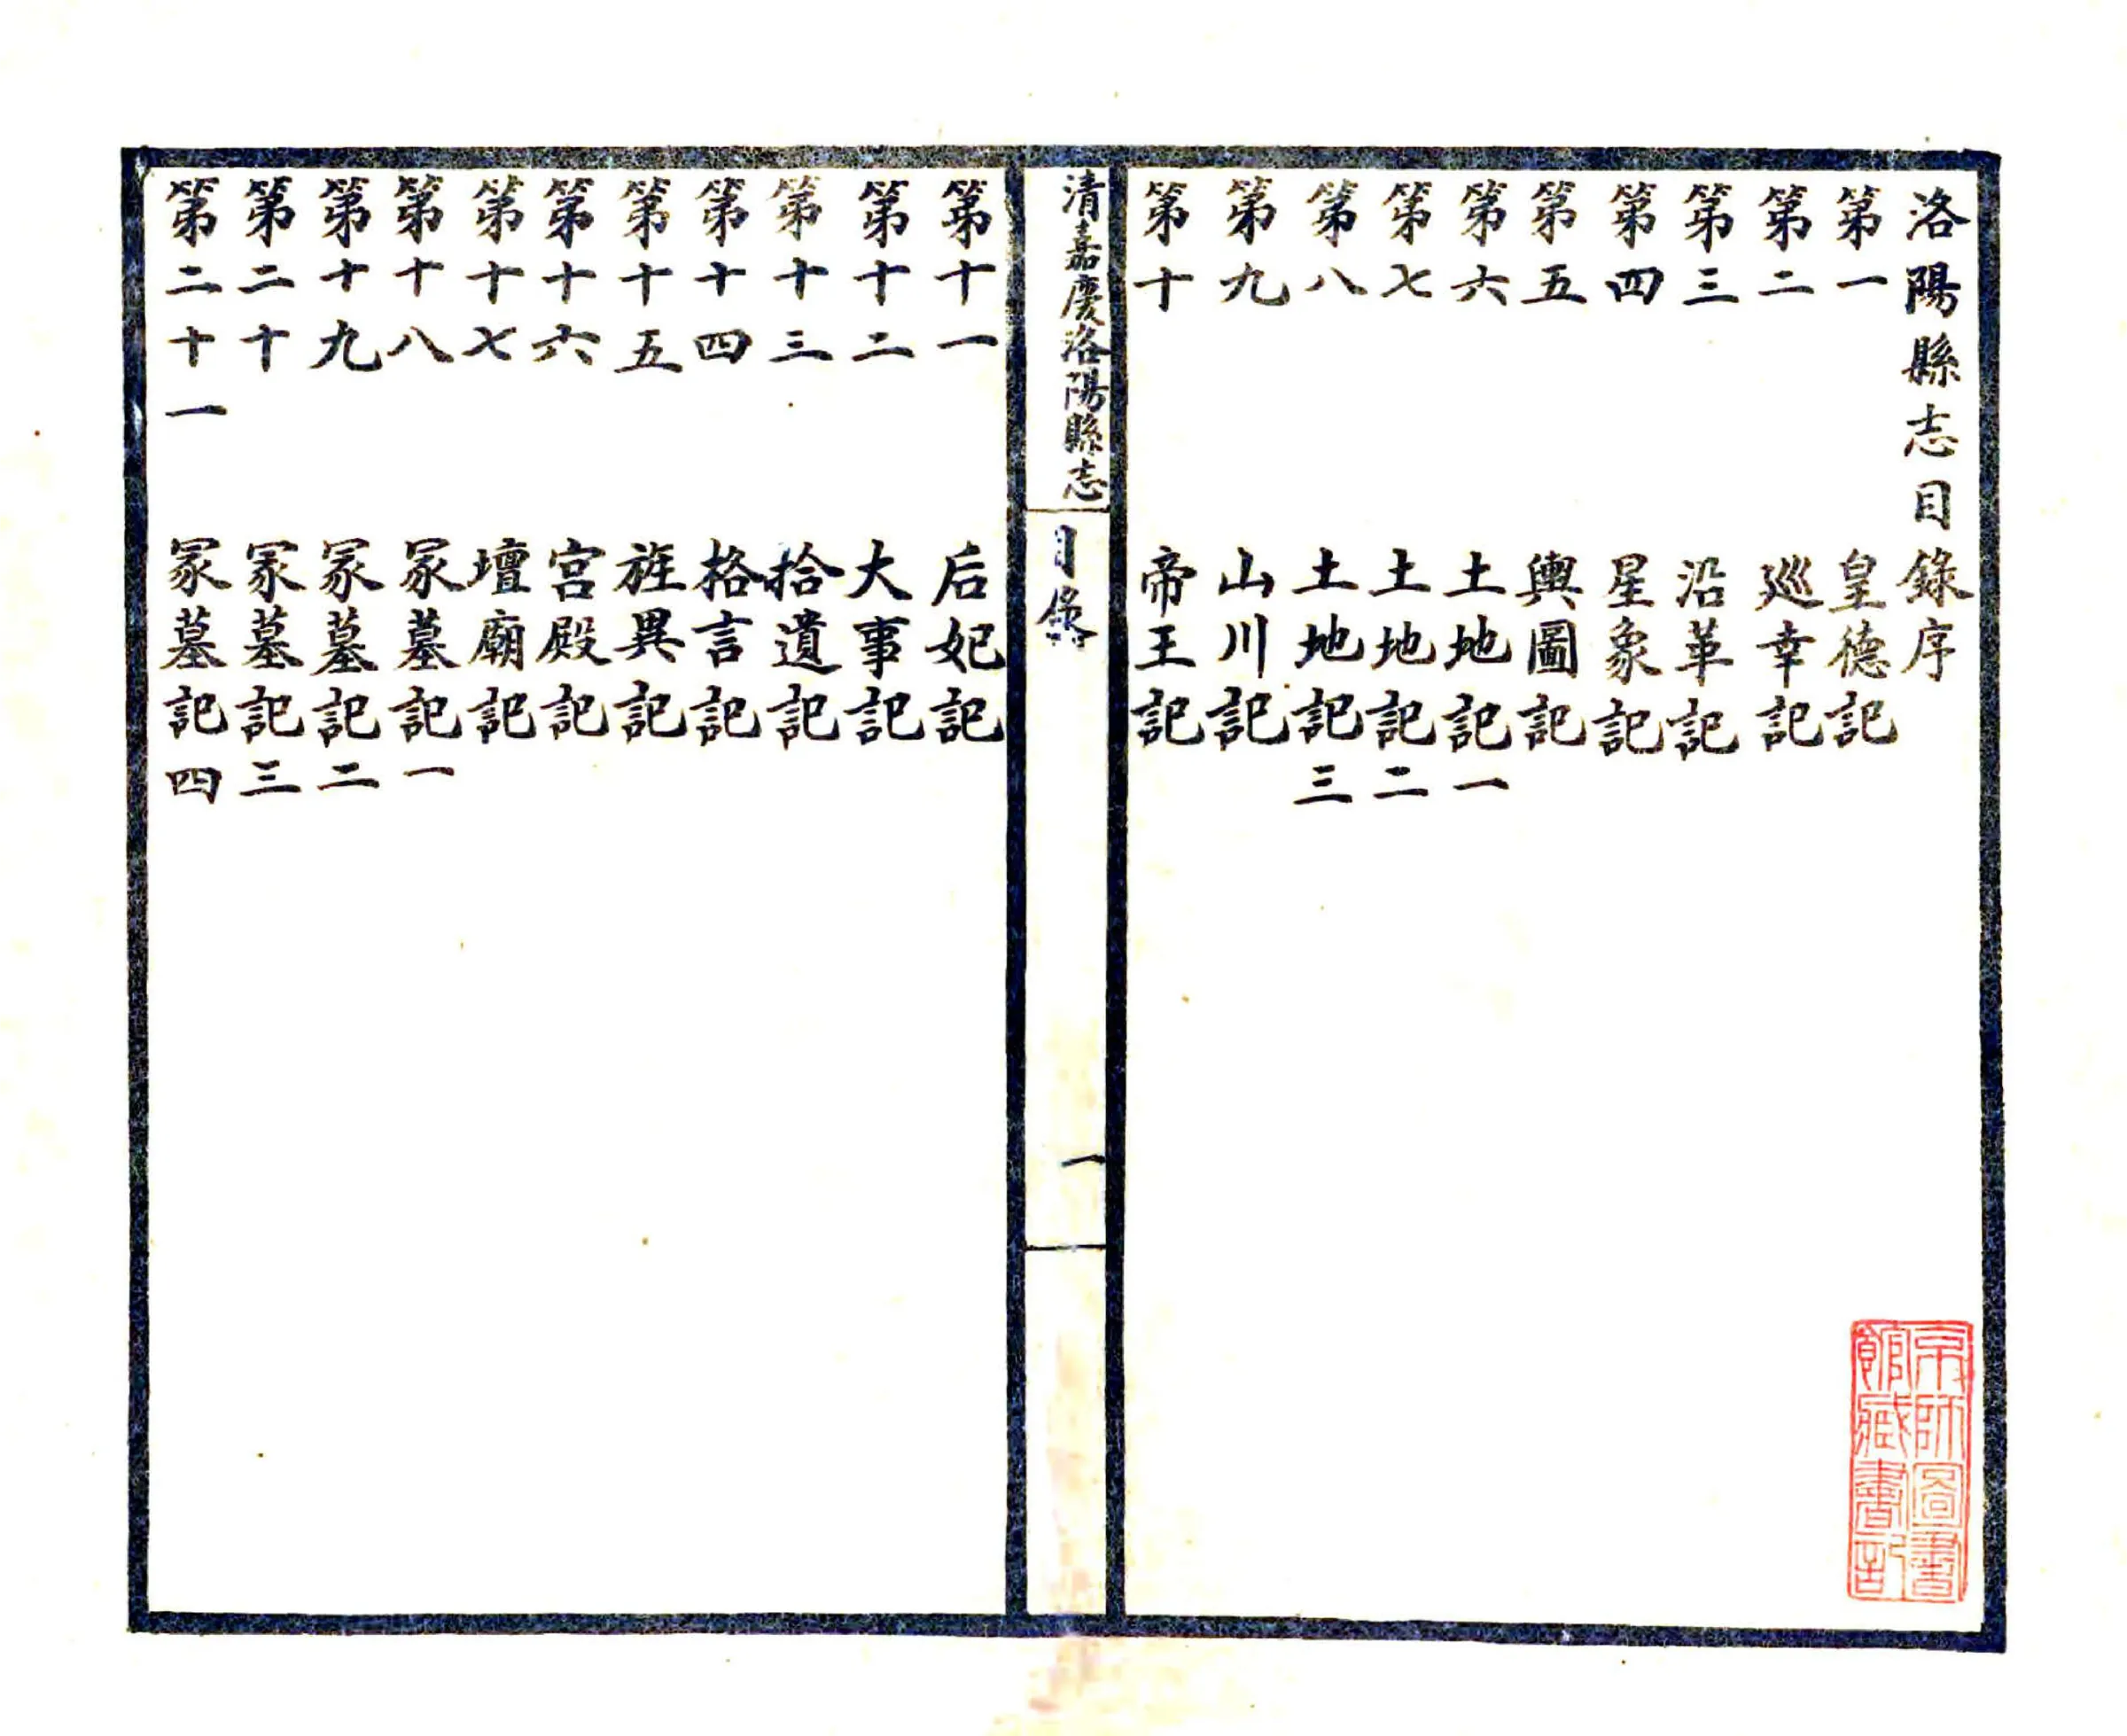 洛陽縣志目錄序
第一 皇德記
第二 巡幸記
第三 沿革記
第四 星象記
第五 輿圖記
第六 土地記一
第七 土地記二
第八 土地記三
第九 山川記
第十 帝王記
清嘉慶洛陽縣志 目錄 一
第十一 后妃記
第十二 大事記
第十三 拾遺記
第十四 格言記
第十五 旌異記
第十六 宮殿記
第十七 壇廟記
第十八 冢墓記一
第十九 冢墓記二
第二十 冢墓記三
第二十一 冢墓記四
京師圖書
館藏書記